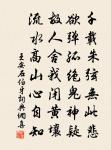 千載朱弦無此悲
欲彈孤絕鬼神疑
故人舍我閉黃壤
流水高山心自知
王安石伯牙詩